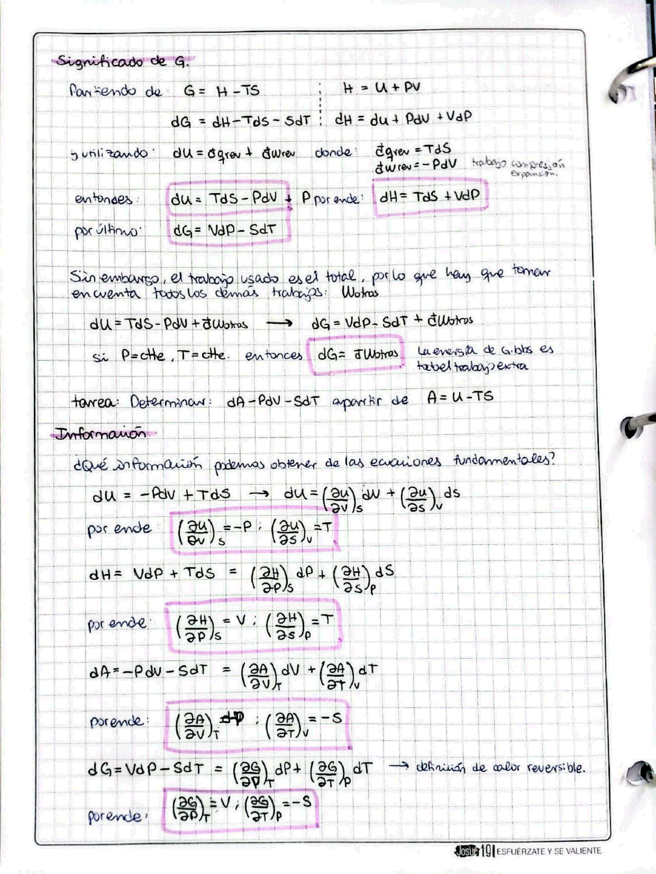 Significado de G.
Partiendo de G = H - TS H = U + PV
dG = dH - TdS - SdT dH = du + PdV + VdP
y utilizando: dU = đqrev + đwrev donde: đqrev = TdS
đwrev = -PdV trabajo compresión
expansión.
entondes: dU = TdS - PdV + P por ende: dH = TdS + VdP
por último: dG = VdP - SdT
Sin embargo, el trabajo usado es el total, por lo que hay que tomar
en cuenta todos los demás trabajos: Wotros
dU = TdS - PdV + đWotros → dG = VdP - SdT + đWotros
si P = cte, T = cte. entonces dG = đWotros La energía de Gibbs es
trabajo extra
tarea: Determinar: dA-PdV-SdT a partir de A = U - TS
Información
¿Qué información podemos obtener de las ecuaciones fundamentales?
dU = -PdV + TdS → dU = (∂U/∂V)s dV + (∂U/∂S)v ds
por ende (∂U/∂V)s = -P ; (∂U/∂S)v = T
dH = VdP + TdS = (∂H/∂P)s dP + (∂H/∂S)p dS
por ende: (∂H/∂P)s = V ; (∂H/∂S)p = T
dA = -PdV - SdT = (∂A/∂V)T dV + (∂A/∂T)v dT
por ende: (∂A/∂V)T ; (∂A/∂T)v = -S
dG = VdP - SdT = (∂G/∂P)T dP + (∂G/∂T)p dT → definición de calor reversible.
por ende: (∂G/∂P)T = V ; (∂G/∂T)p = -S
Josué 1:9 ESFUÉRZATE Y SE VALIENTE